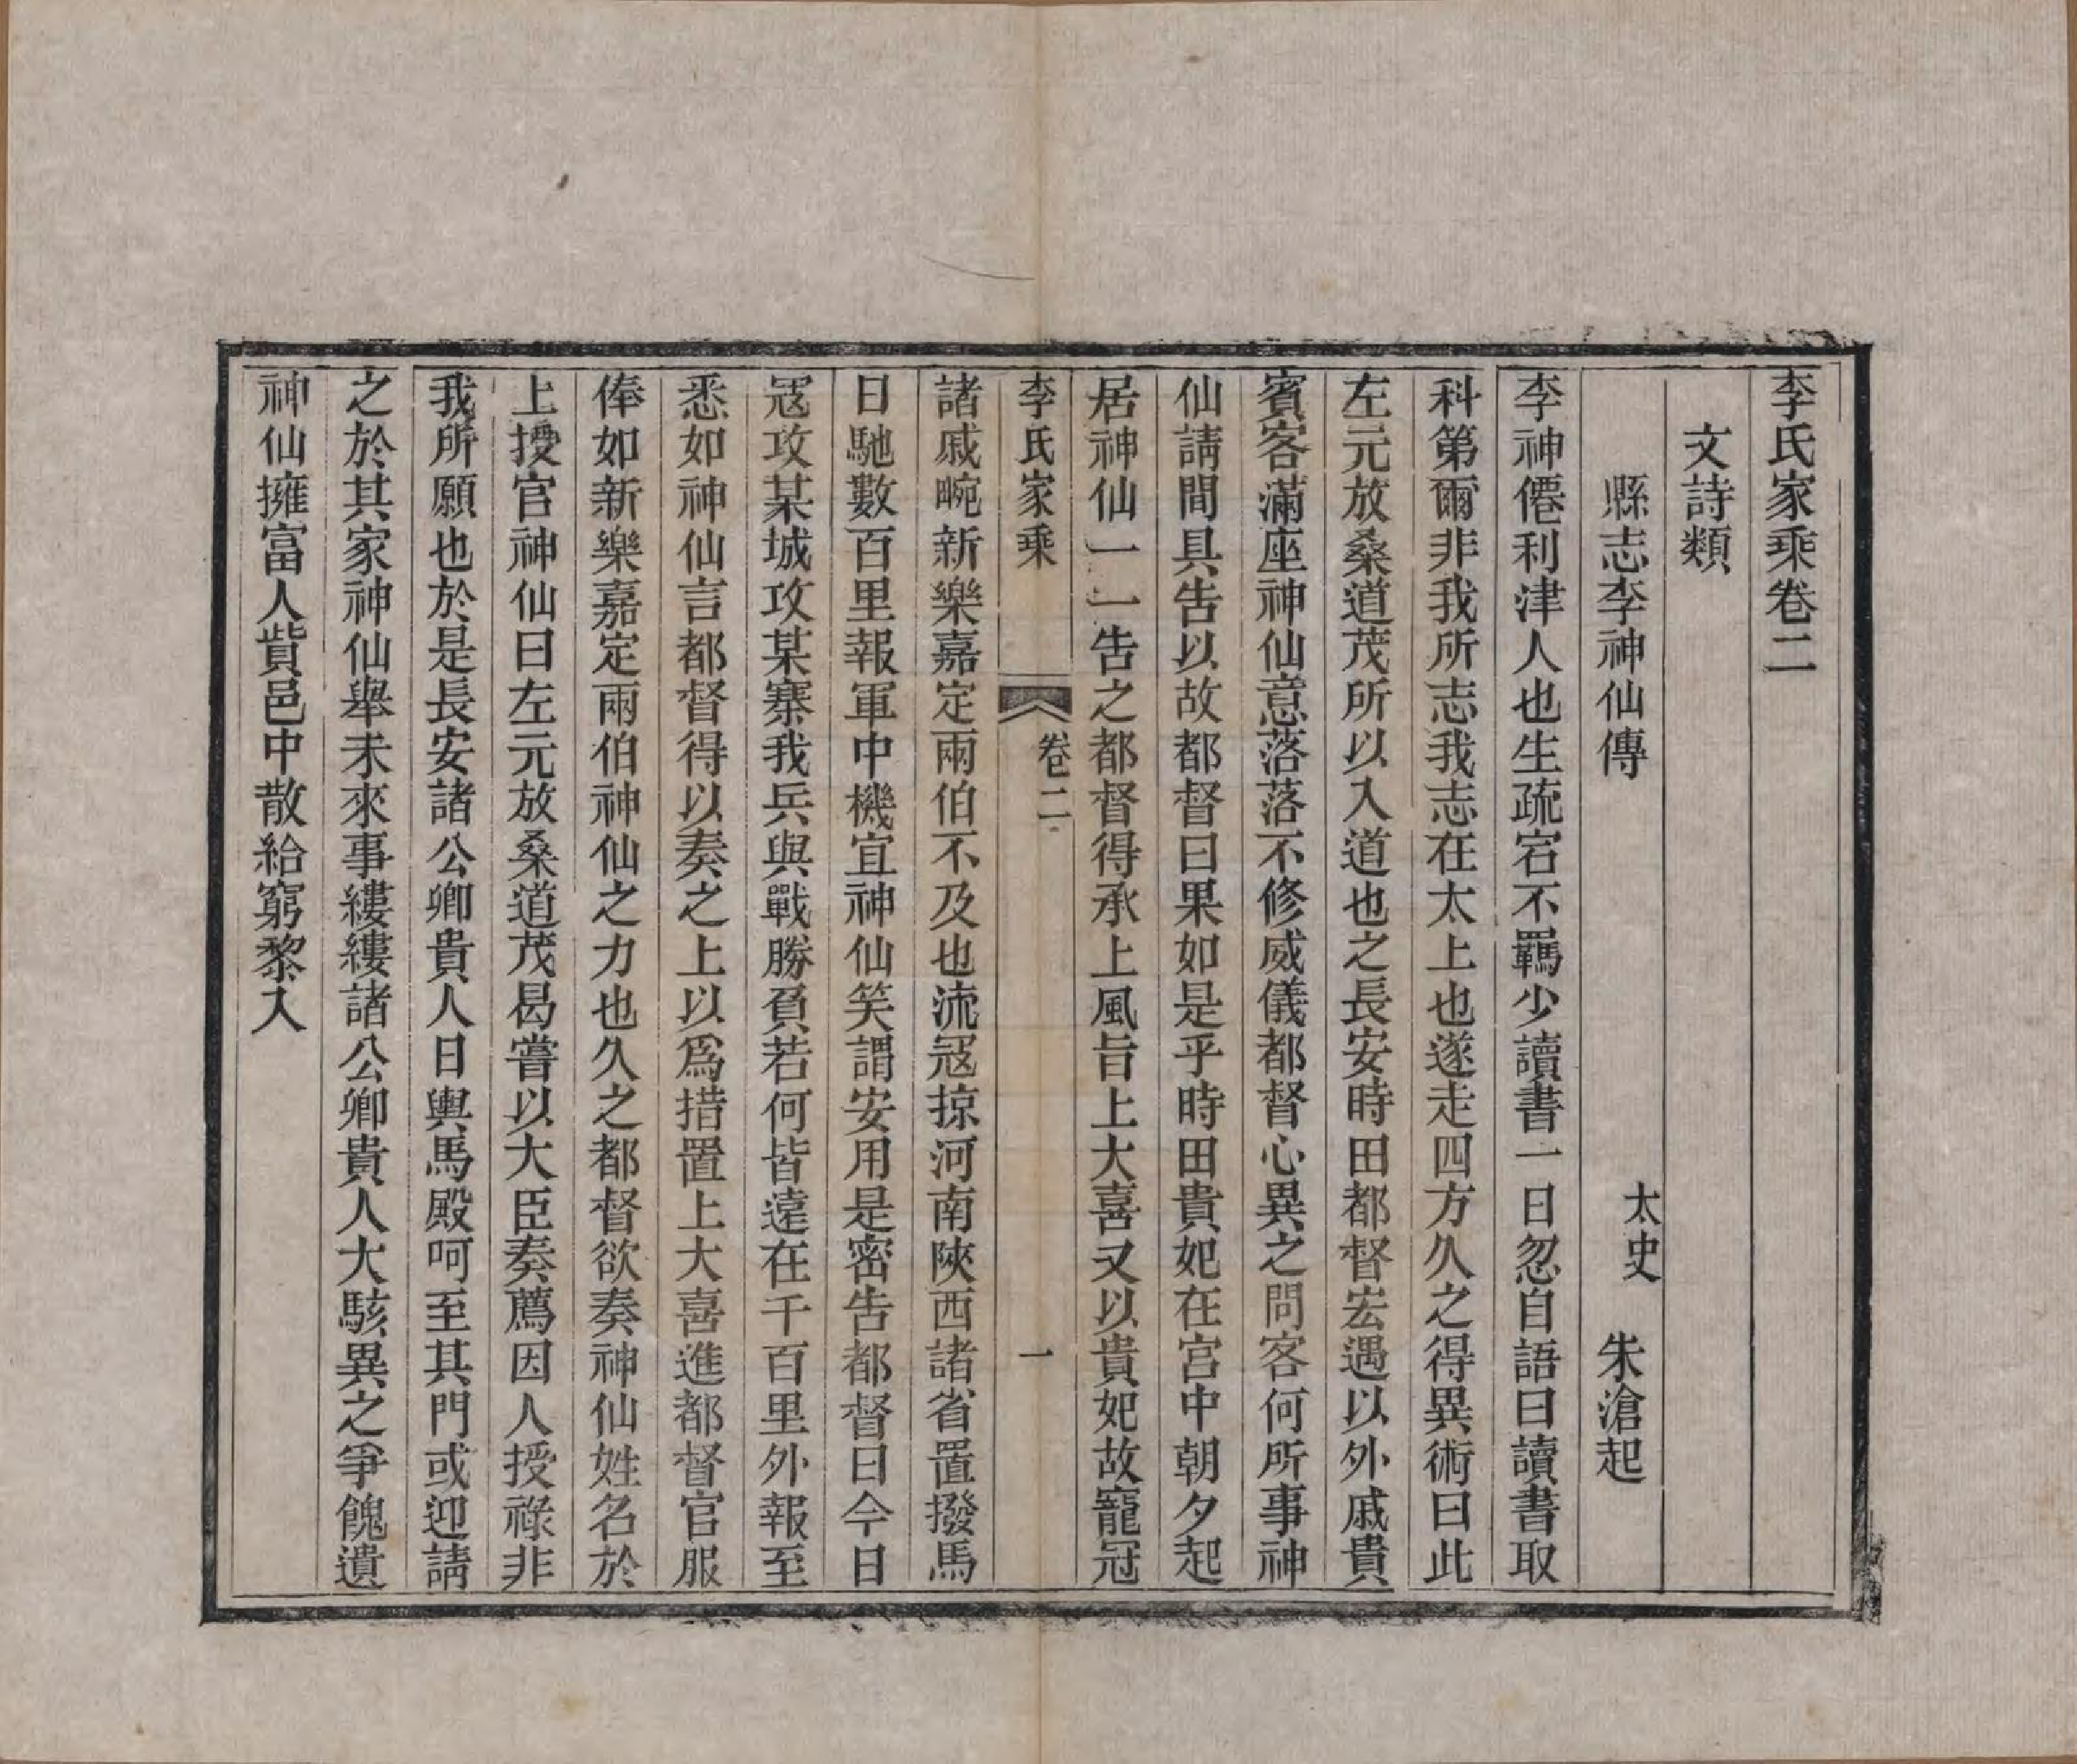 李氏家乘卷二
文詩類
縣志李神仙傳　太史　朱滄起
李神僊利津人也生疏宕不羈少讀書一日忽自語曰讀書取
科第爾非我所志我志在太上也遂走四方久之得異術曰此
左元放桑道茂所以入道也之長安時田都督宏遇以外戚貴
賓客滿座神仙意落落不修威儀都督心異之問客何所事神
仙請間具告以故都督曰果如是乎時田貴妃在宮中朝夕起
居神仙一一告之都督得承上風旨上大喜又以貴妃故寵冠
李氏家乘　卷二　一
諸戚畹新樂嘉定兩伯不及也流寇掠河南陝西諸省置撥馬
日馳數百里報軍中機宜神仙笑謂安用是密告都督曰今日
寇攻某城攻某寨我兵與戰勝負若何皆遠在千百里外報至
悉如神仙言都督得以奏之上以為措置上大喜進都督官服
俸如新樂嘉定兩伯神仙之力也久之都督欲奏神仙姓名於
上授官神仙曰左元放桑道茂曷嘗以大臣奏薦因人授祿非
我所願也於是長安諸公卿貴人日輿馬殿呵至其門或迎請
之於其家神仙舉未來事縷縷諸公卿貴人大駭異之爭餽遺
神仙擁富人貲邑中散給窮黎入